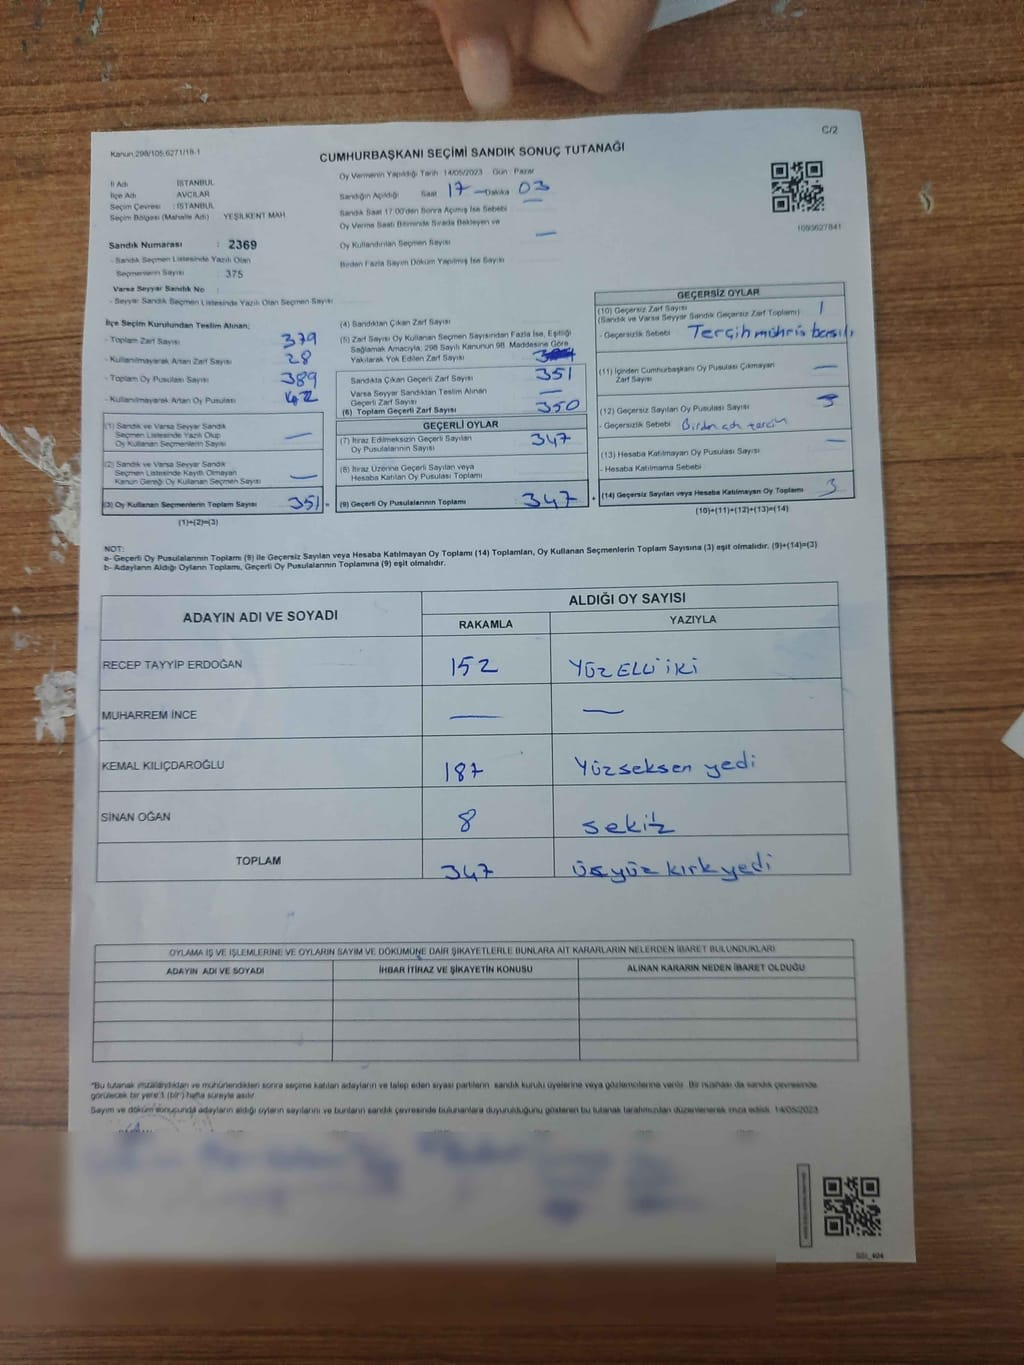 C/2
Kanun 298/105;6271/18-1
CUMHURBAŞKANI SEÇİMİ SANDIK SONUÇ TUTANAĞI
İl Adı : İSTANBUL
İlçe Adı : AVCILAR
Seçim Çevresi : İSTANBUL
Seçim Bölgesi (Mahalle Adı) : YEŞİLKENT MAH
Sandık Numarası : 2369
- Sandık Seçmen Listesinde Yazılı Olan
Seçmenlerin Sayısı : 375
Varsa Seyyar Sandık No :
- Seyyar Sandık Seçmen Listesinde Yazılı Olan Seçmen Sayısı
Oy Vermenin Yapıldığı Tarih 14/05/2023 Gün : Pazar
Sandığın Açıldığı Saat 17 Dakika 03
Sandık Saat 17:00'den Sonra Açılmış İse Sebebi
Oy Verme Saati Bitiminde Sırada Bekleyen ve
Oy Kullandırılan Seçmen Sayısı —
Birden Fazla Sayım Döküm Yapılmış İse Sayısı
1093627841
İlçe Seçim Kurulundan Teslim Alınan;
- Toplam Zarf Sayısı 379
- Kullanılmayarak Artan Zarf Sayısı 28
- Toplam Oy Pusulası Sayısı 389
- Kullanılmayarak Artan Oy Pusulası 42
(1) Sandık ve Varsa Seyyar Sandık
Seçmen Listesinde Yazılı Olup
Oy Kullanan Seçmenlerin Sayısı —
(2) Sandık ve Varsa Seyyar Sandık
Seçmen Listesinde Kayıtlı Olmayan
Kanun Gereği Oy Kullanan Seçmen Sayısı —
(3) Oy Kullanan Seçmenlerin Toplam Sayısı 351 =
(1)+(2)=(3)
(4) Sandıktan Çıkan Zarf Sayısı
(5) Zarf Sayısı Oy Kullanan Seçmen Sayısından Fazla İse, Eşitliği
Sağlamak Amacıyla, 298 Sayılı Kanunun 98. Maddesine Göre
Yakılarak Yok Edilen Zarf Sayısı
Sandıkta Çıkan Geçerli Zarf Sayısı 351
Varsa Seyyar Sandıktan Teslim Alınan
Geçerli Zarf Sayısı —
(6) Toplam Geçerli Zarf Sayısı 350
GEÇERLİ OYLAR
(7) İtiraz Edilmeksizin Geçerli Sayılan
Oy Pusulası Sayısı 347
(8) İtiraz Üzerine Geçerli Sayılan veya
Hesaba Katılan Oy Pusulası Toplamı
(9) Geçerli Oy Pusulalarının Toplamı 347 +
GEÇERSİZ OYLAR
(10) Geçersiz Zarf Sayısı 1
(Sandık ve Varsa Seyyar Sandık Geçersiz Zarf Toplamı)
- Geçersizlik Sebebi Tercih mührü basılı
(11) İçinden Cumhurbaşkanı Oy Pusulası Çıkmayan
Zarf Sayısı —
(12) Geçersiz Sayılan Oy Pusulası Sayısı 3
- Geçersizlik Sebebi
(13) Hesaba Katılmayan Oy Pusulası Sayısı —
- Hesaba Katılmama Sebebi
(14) Geçersiz Sayılan veya Hesaba Katılmayan Oy Toplamı 3
(10)+(11)+(12)+(13)=(14)
NOT:
a- Geçerli Oy Pusulalarının Toplamı (9) ile Geçersiz Sayılan veya Hesaba Katılmayan Oy Toplamı (14) Toplamları, Oy Kullanan Seçmenlerin Toplam Sayısına (3) eşit olmalıdır. (9)+(14)=(3)
b- Adayların Aldığı Oyların Toplamı, Geçerli Oy Pusulalarının Toplamına (9) eşit olmalıdır.
ADAYIN ADI VE SOYADI
ALDIĞI OY SAYISI
RAKAMLA YAZIYLA
RECEP TAYYİP ERDOĞAN 152 YÜZELLİ iKİ
MUHARREM İNCE — —
KEMAL KILIÇDAROĞLU 187 Yüzseksen yedi
SİNAN OĞAN 8 sekiz
TOPLAM 347 üçyüz kırk yedi
OYLAMA İŞ VE İŞLEMLERİNE VE OYLARIN SAYIM VE DÖKÜMÜNE DAİR ŞİKAYETLERLE BUNLARA AİT KARARLARIN NELERDEN İBARET BULUNDUKLARI
ADAYIN ADI VE SOYADI İHBAR İTİRAZ VE ŞİKAYETİN KONUSU ALINAN KARARIN NEDEN İBARET OLDUĞU
*Bu tutanak imzalandıktan ve mühürlendikten sonra seçime katılan adayların ve talep eden siyasi partilerin sandık kurulu üyelerine veya gözlemcilerine verilir. Bir nüshası da sandık çevresinde
görülecek bir yere 1 (bir) hafta süreyle asılır.
Sayım ve döküm sonucunda adayların aldığı oyların sayılarını ve bunların sandık çevresinde bulunanlara duyurulduğunu gösteren bu tutanak tarafımızdan düzenlenerek imza edildi. 14/05/2023